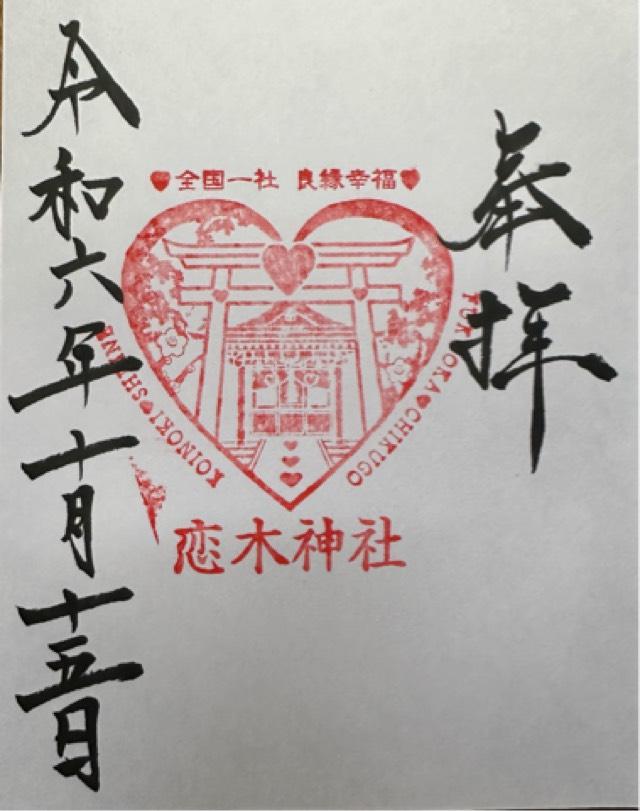 奉拝
全国一社 良縁幸福
FUKUOKA CHIKUGO
KOINOKI SHRINE
恋木神社
令和六年十月十五日